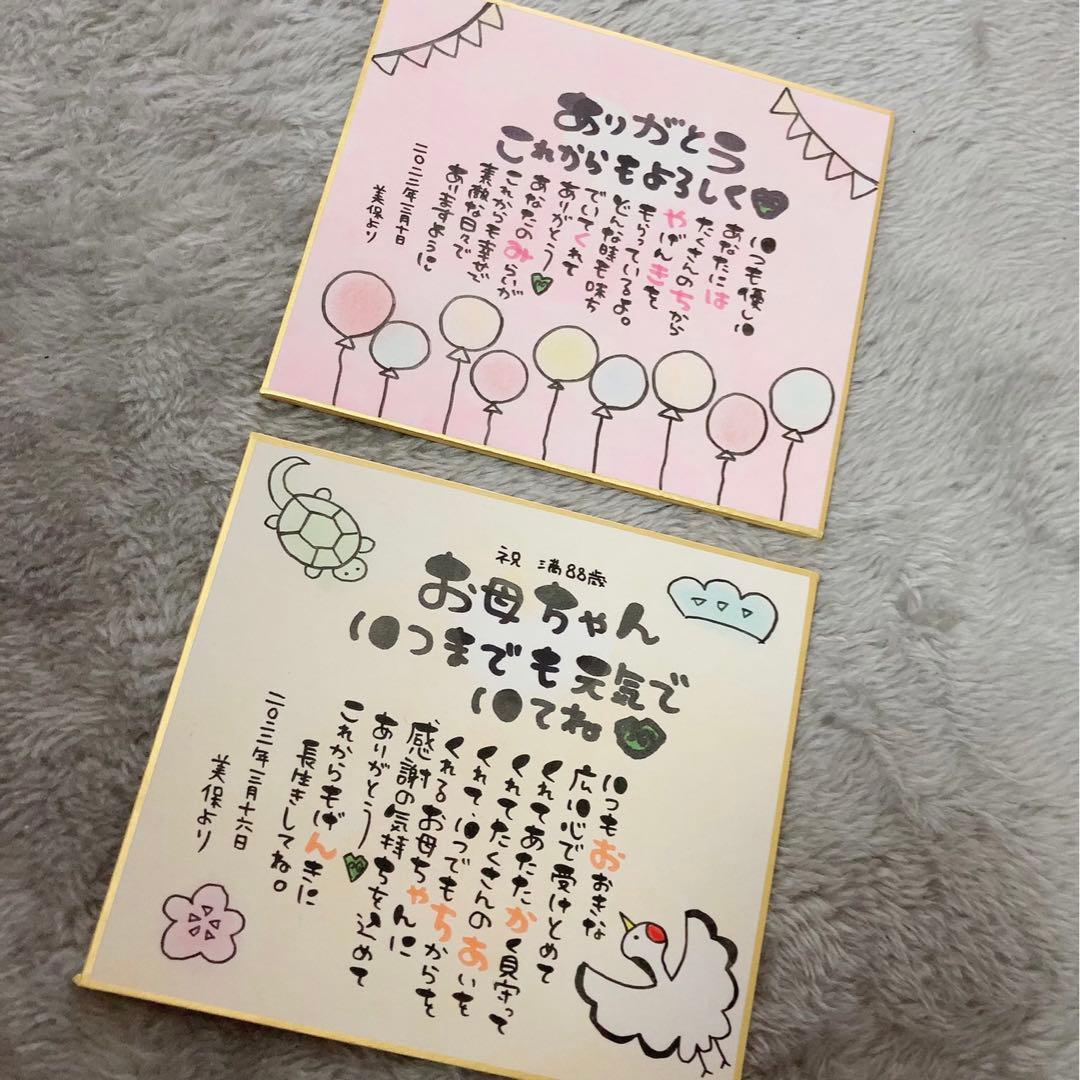 ありがとう
これからもよろしく
いつも優しい
あなたには
たくさんのちから
やげんきを
もらっているよ。
どんな時も味方
でいてくれて
ありがとう
あなたのみらいが
これからも幸せで
素敵な日々で
ありますように
二〇二二年三月十日
美保より
祝 満88歳
お母ちゃん
いつまでも元気で
いてね
いつもおおきな
広い心で受けとめて
くれてあたたかく見守って
くれてたくさんのあいを
くれて、いつでもちからを
くれるお母ちゃんに
感謝の気持ちを込めて
ありがとう
これからもげんきに
長生きしてね。
二〇二二年三月十六日
美保より